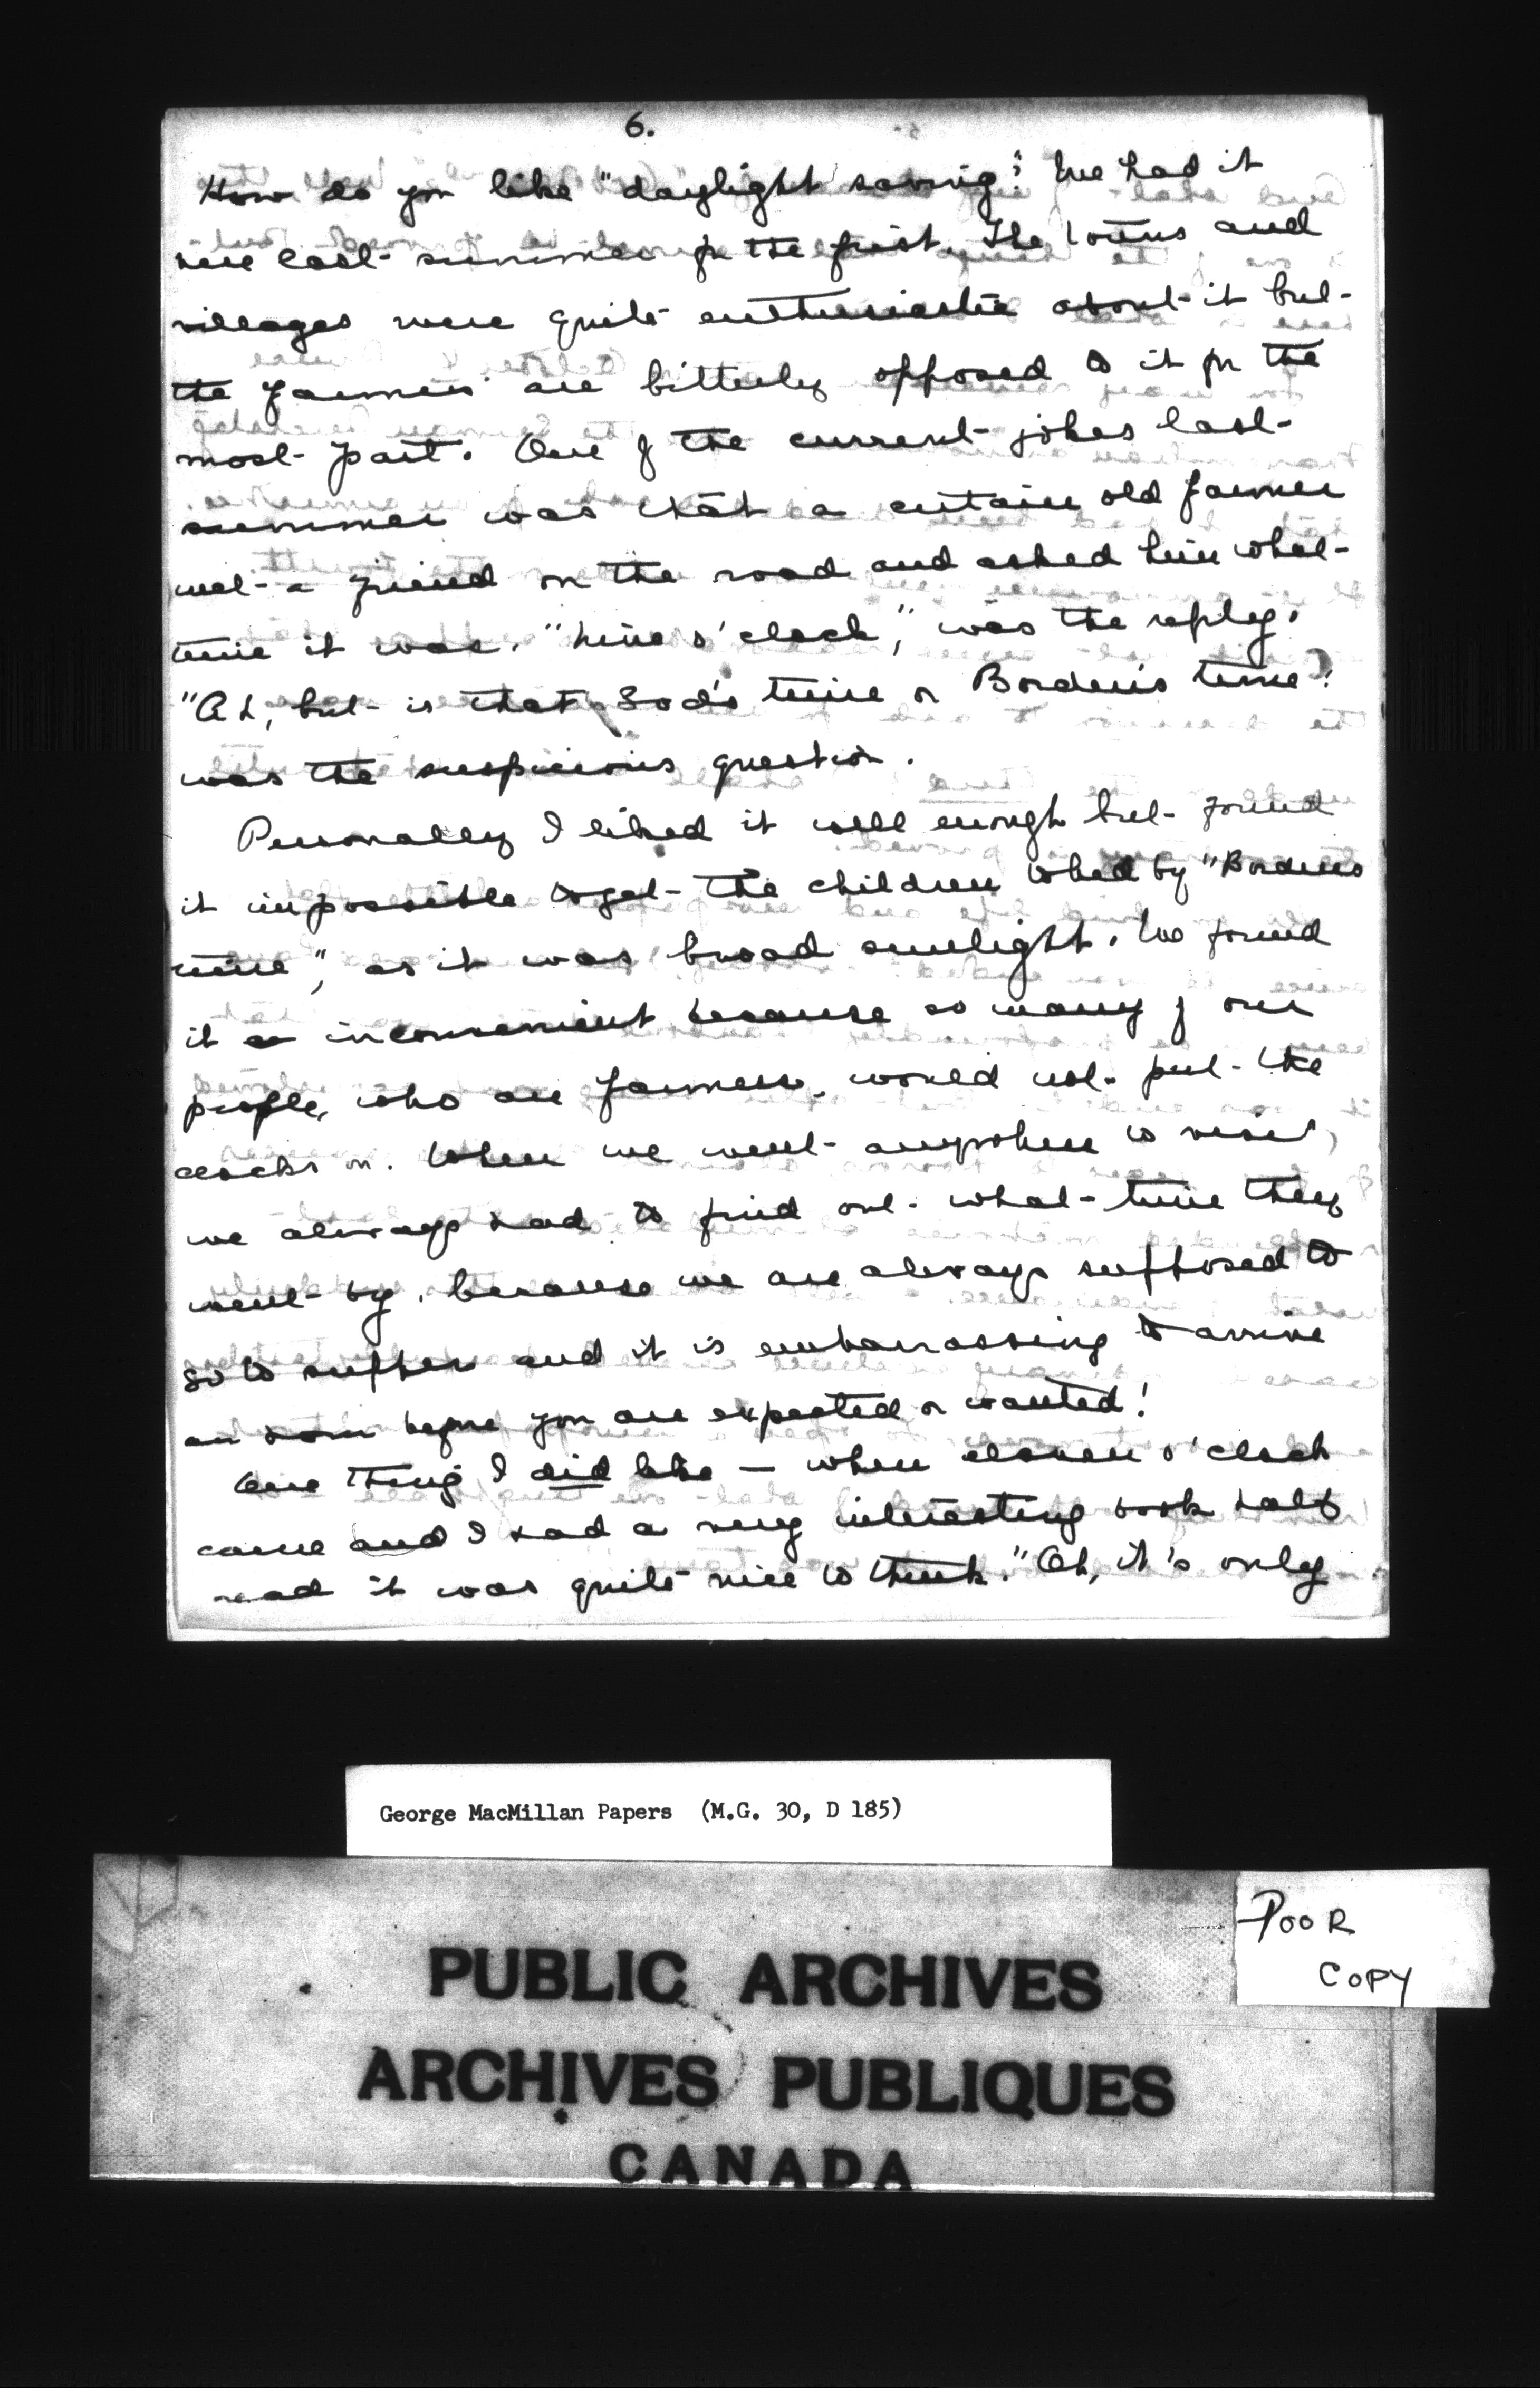 6.
How do you like "daylight saving". We had it
here last summer for the first. The towns and
villages were quite enthusiastic about it but
the farmers are bitterly opposed to it for the
most part. One of the current jokes last
summer was that a certain old farmer
met a friend on the road and asked him what
time it was. "Nine o'clock," was the reply.
"Ah, but is that God's time or Borden's time?
was the suspicious question.
Personally I liked it well enough but found
it impossible to get the children to bed by "Borden's
time", as it was broad sunlight. We found
it inconvenient because so many of our
people, who are farmers, would not put the
clocks on. When we went anywhere to visit,
we always had to find out what time they
went by, because we are always supposed to
go to supper and it is embarrassing to arrive
an hour before you are expected or wanted!
One thing I did like — when eleven o'clock
came and I had a very interesting book half
read it was quite nice to think. "Oh, it's only
George MacMillan Papers (M.G. 30, D 185)
POOR
COPY
PUBLIC ARCHIVES
ARCHIVES PUBLIQUES
CANADA